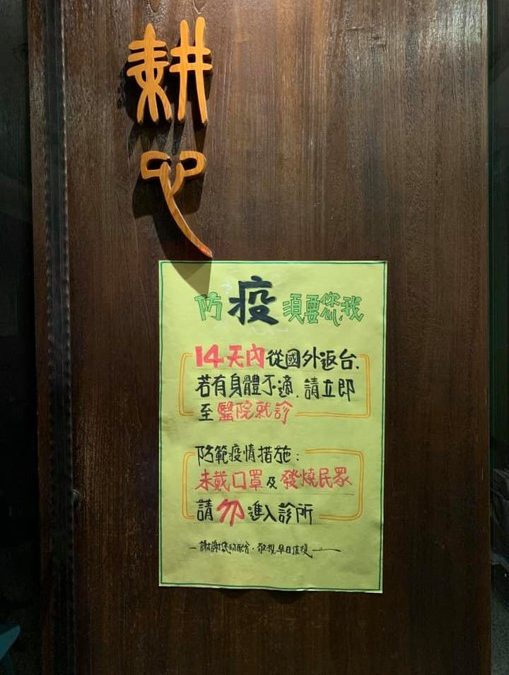 耕心
防疫須要您我
14天內從國外返台.
若有身體不適.請立即
至醫院就診
防範疫情措施:
未戴口罩及發燒民眾
請勿進入診所
—謝謝您的配合.敬祝早日康復—